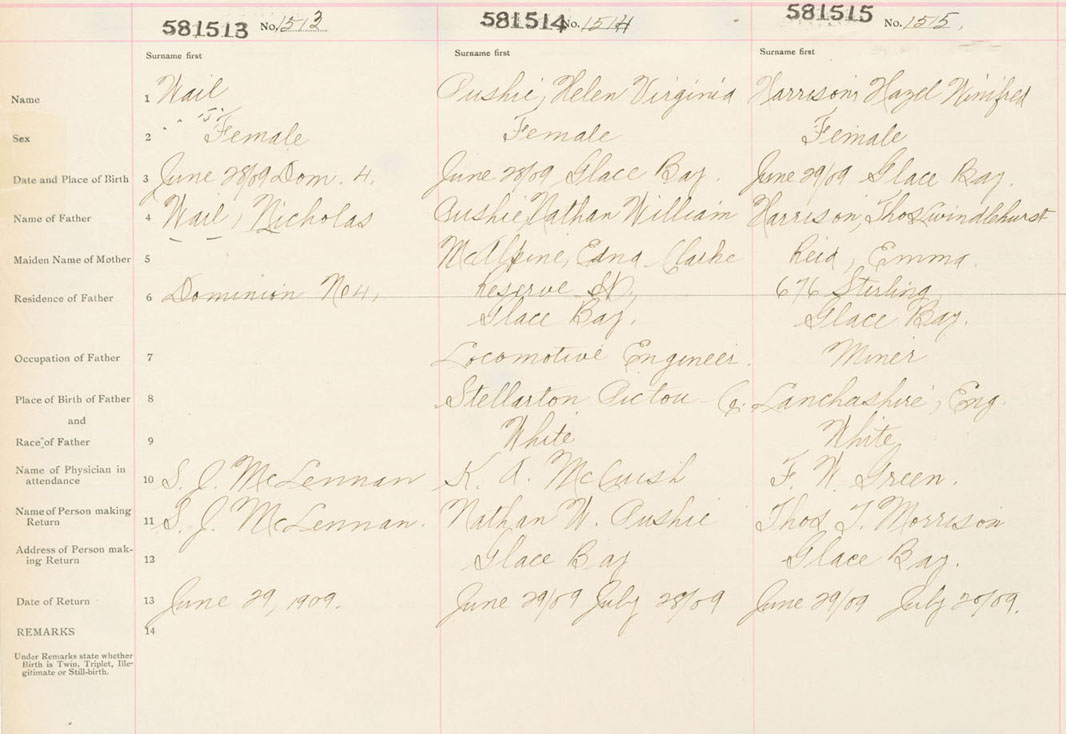 581513 No. 1513 581514 No. 1514 581515 No. 1515.
Surname first Surname first Surname first
Name 1 Wail Pushie, Helen Virginia Harrison, Hazel Winifred
Sex 2 Female Female Female
Date and Place of Birth 3 June 28/09 Dom. 4. June 28/09 Glace Bay. June 29/09 Glace Bay.
Name of Father 4 Wail, Nicholas Pushie Nathan William Harrison, Thos Swindlehurst
Maiden Name of Mother 5 McAlpine, Edna Clarke Reid, Emma.
Residence of Father 6 Dominion No 4, Reserve St, 676 Sterling
Glace Bay. Glace Bay.
Occupation of Father 7 Locomotive Engineer. Miner
Place of Birth of Father 8 Stellarton Pictou Co. Lanchashire, Eng.
and
Race of Father 9 White White
Name of Physician in
attendance 10 S. J. McLennan K. A. McCuish F. W. Green.
Name of Person making
Return 11 S. J. McLennan. Nathan W. Pushie Thos J. Morrison
Address of Person mak-
ing Return 12 Glace Bay Glace Bay.
Date of Return 13 June 29, 1909. June 29/09 July 28/09 June 29/09 July 20/09.
REMARKS 14
Under Remarks state whether
Birth is Twin, Triplet, Ille-
gitimate or Still-birth.